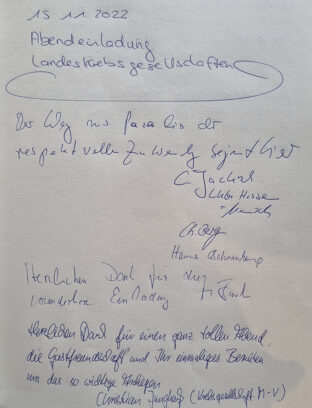 15 11 2022
Abendeinladung
Landeskrebsgesellschaften
Der Weg ins Paradies der
respektvollen Zuwendung beginnt hier
C Jackisch
LKG Hessen
Herzlichen Dank für die
wunderbare Einladung
Herzlichen Dank für einen ganz tollen Abend,
die Gastfreundschaft und Ihr einmaliges Bemühen
um das so wichtige Anliegen
Christian (Krebsgesellschaft M-V)